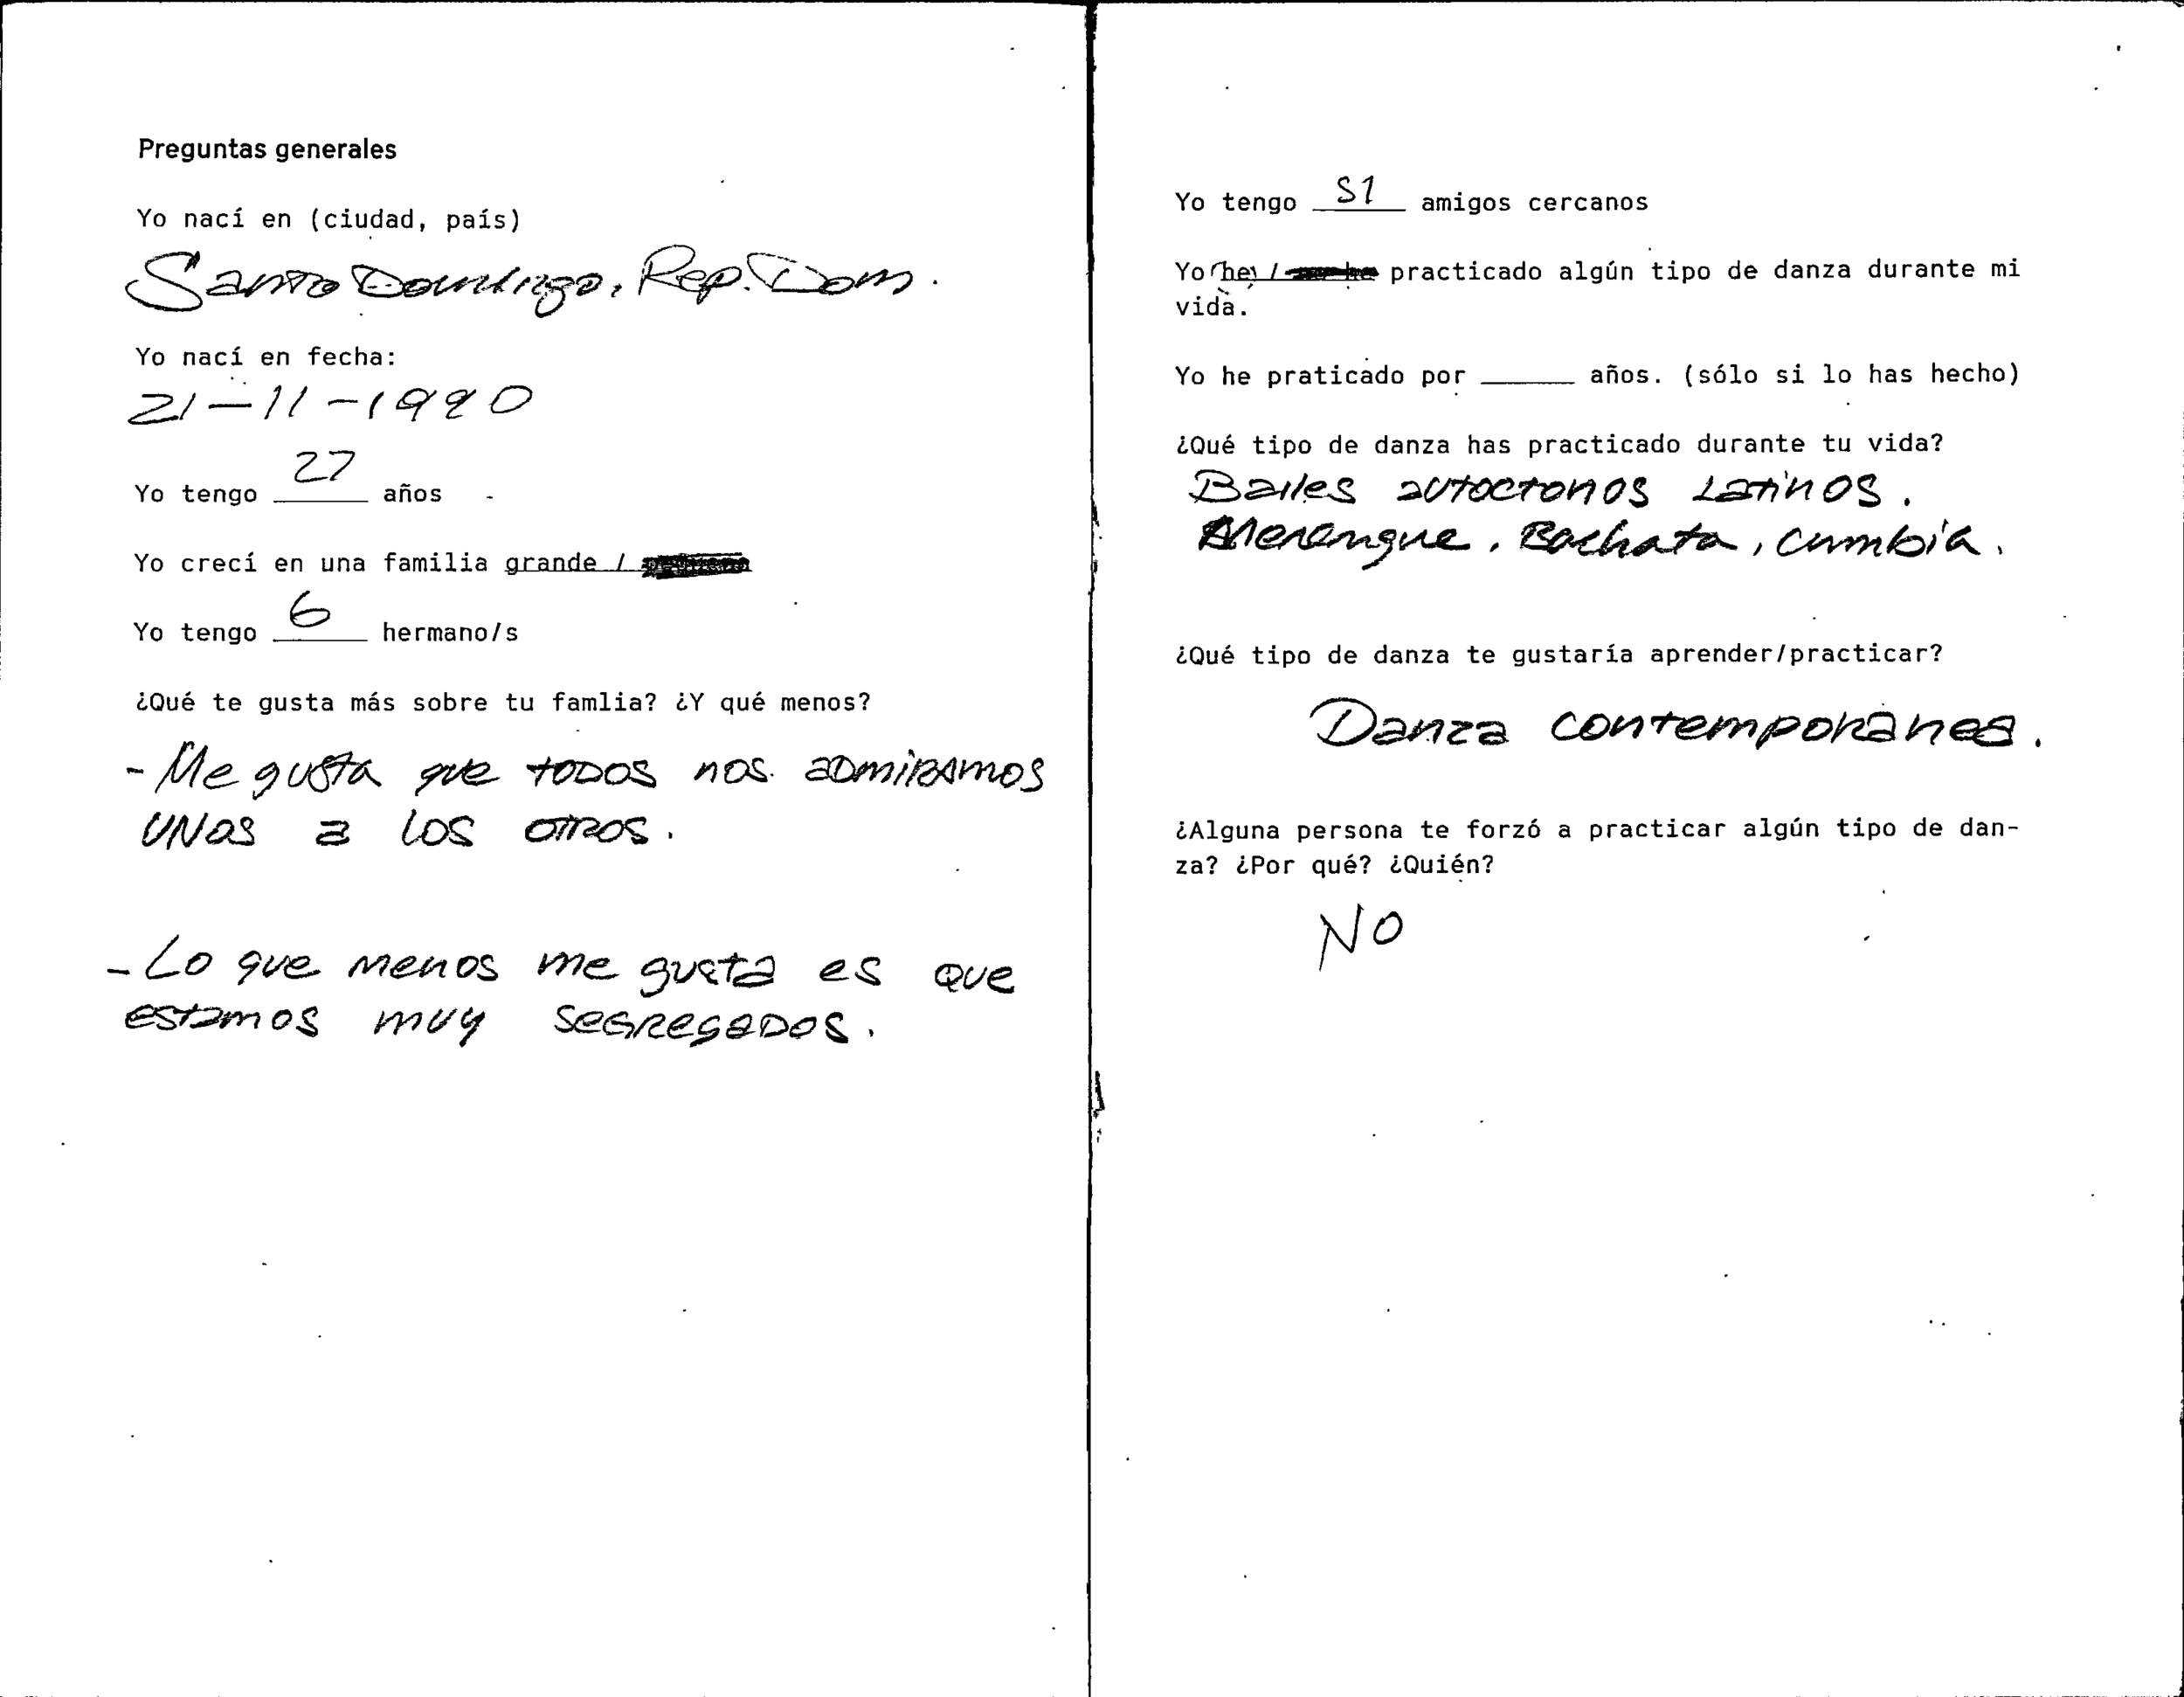 Preguntas generales
Yo nací en (ciudad, país)
Santo Domingo. Rep. Dom.
Yo nací en fecha:
21-11-1990
Yo tengo 27 años
Yo crecí en una familia grande /
Yo tengo 6 hermano/s
¿Qué te gusta más sobre tu famlia? ¿Y qué menos?
- Me gusta que TODOS nos ADMIRAMOS
UNOS a LOS OTROS.
- Lo que menos me gusta es que
estamos muy SEGREGADOS.
Yo tengo SI amigos cercanos
Yo he / practicado algún tipo de danza durante mi
vida.
Yo he praticado por ______ años. (sólo si lo has hecho)
¿Qué tipo de danza has practicado durante tu vida?
Bailes autoctonos Latinos.
Merengue, Bachata, cumbia.
¿Qué tipo de danza te gustaría aprender/practicar?
Danza contemporánea.
¿Alguna persona te forzó a practicar algún tipo de dan-
za? ¿Por qué? ¿Quién?
NO